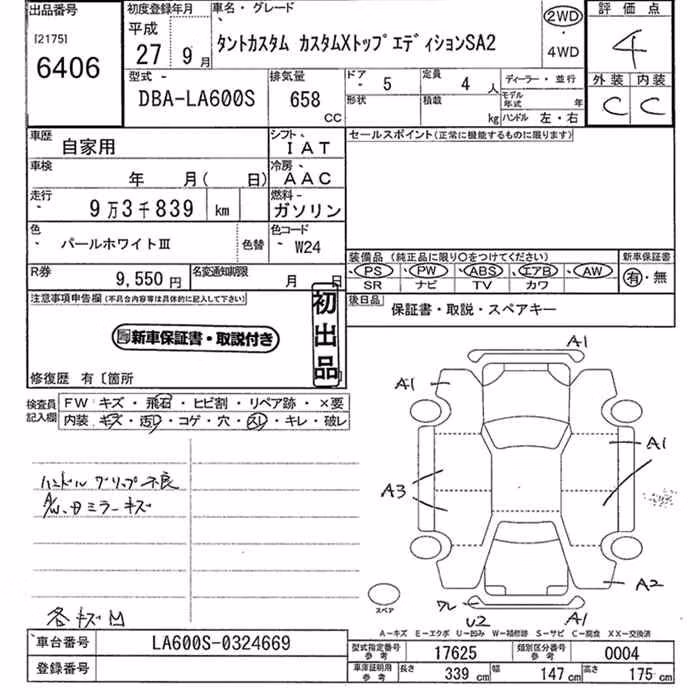 出品番号
[2175]
6406
初度登録年月
平成
27年 9月
車名・グレード
タントカスタム カスタムXトップエディションSA2
2WD
・
4WD
評価点
4
外装 内装
C C
型式
DBA-LA600S
排気量
658
CC
ドア
5
定員
4 人
形状
積載
kg
ディーラー・並行
モデル年式 年
ハンドル 左・右
車歴
自家用
シフト
IAT
車検
年 月( 日)
冷房
AAC
走行
9万3千839 km
燃料
ガソリン
色
パールホワイトIII
色替
色コード
W24
R券
9,550円
名変通知期限
月 日
セールスポイント(正常に機能するものに限ります)
装備品(純正品に限り○をつけてください)
新車保証書
PS・PW・ABS・エアB・AW
SR ナビ TV カワ
有・無
後日品
保証書・取説・スペアキー
注意事項申告欄(不具合内容等は具体的に記入して下さい)
新車保証書・取説付き
初出品
修復歴 有〔箇所
検査員
記入欄
FW キズ・飛石・ヒビ割・リペア跡・×要
内装・キズ・汚レ・コゲ・穴・スレ・キレ・破レ
ハンドル グリップ不良
A/W、ミラーキズ
各キズ凹
A1
A1
A1
A3
A2
ワレ
U2
A1
スペア
A-キズ E-エクボ U-凹み W-補修跡 S-サビ C-腐食 XX-交換済
車台番号
LA600S-0324669
登録番号
型式指定番号
参考
17625
類別区分番号
参考
0004
車庫証明用
参考
長さ
339 cm
幅
147 cm
高さ
175 cm